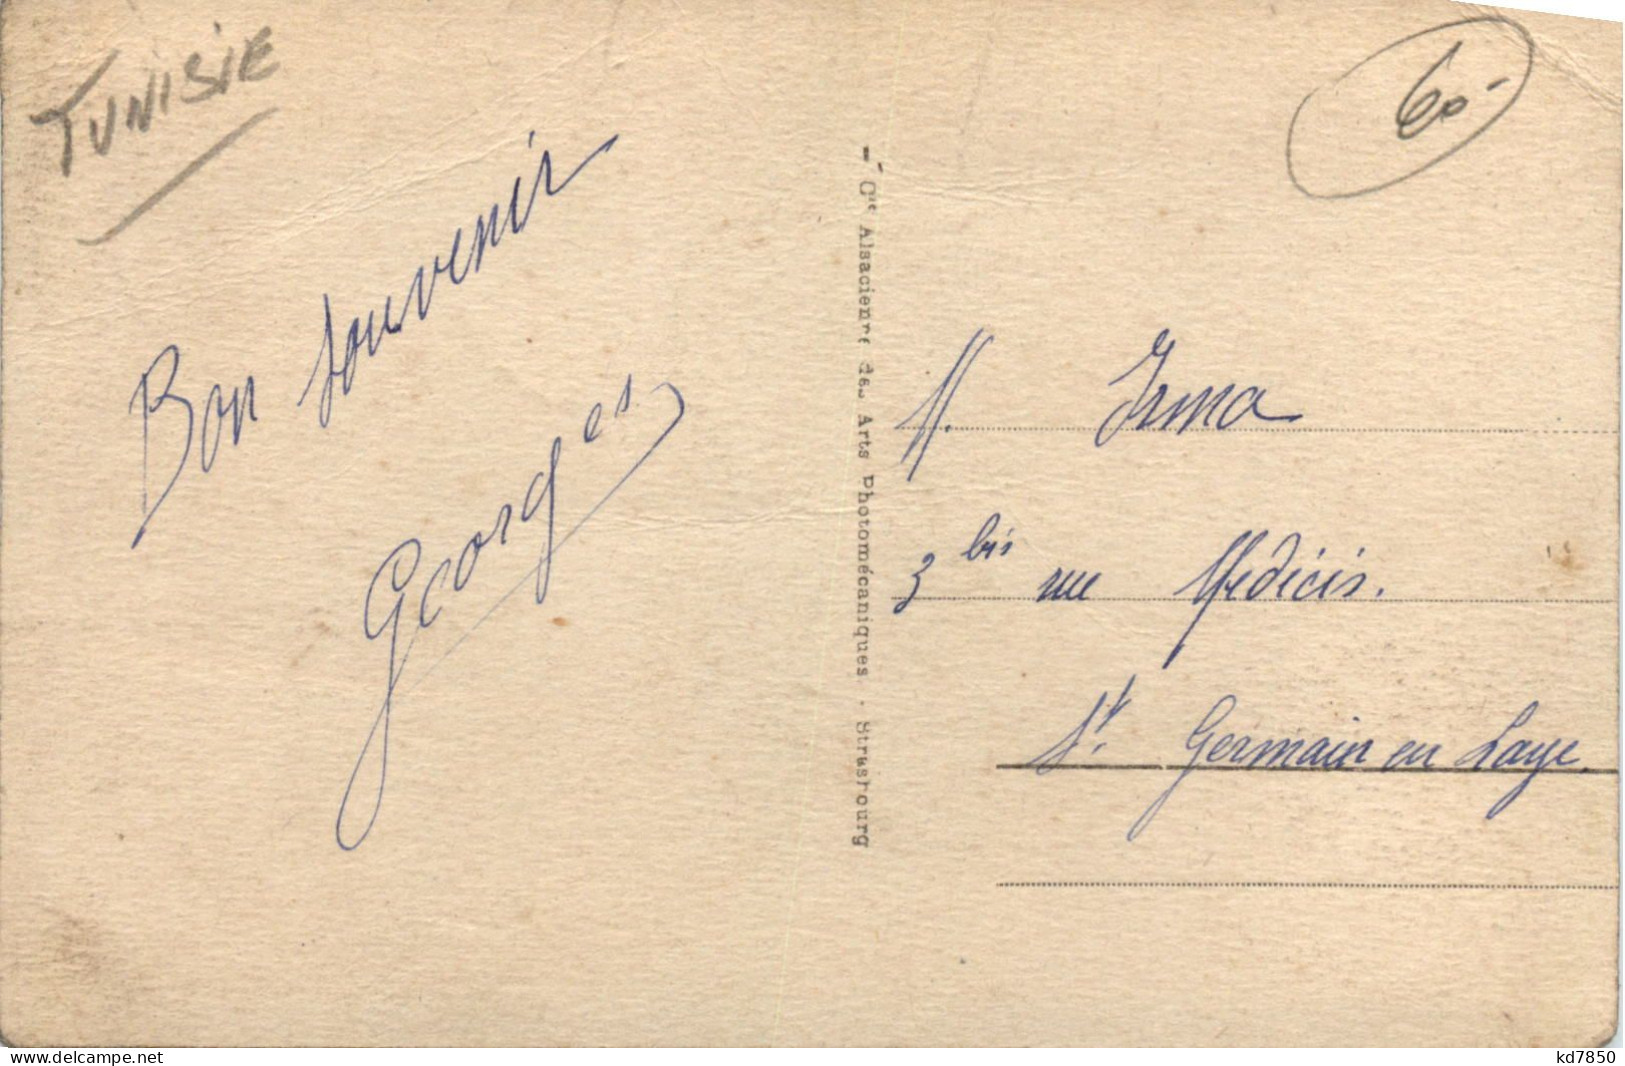 TUNISIE
60-
Bon souvenir
Georges
Cie Alsacienne des Arts Photomécaniques - Strasbourg
M. Irma
3 bis rue Medicis.
St. Germain en Laye.
www.delcampe.net
kd7850